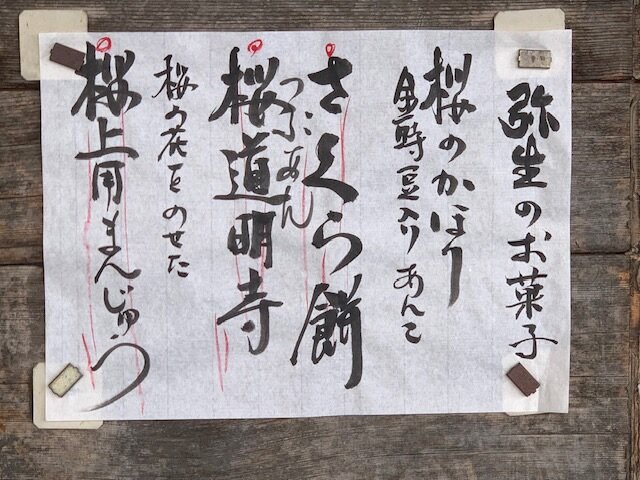 弥生のお菓子
桜のかほり
金時豆入りあんこ
さくら餅
つぶあん
桜道明寺
桜の花をのせた
桜上用まんじゅう